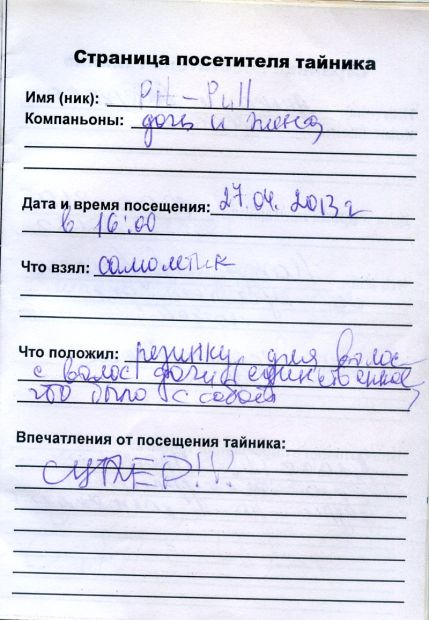 Страница посетителя тайника
Имя (ник): Pit-Pull
Компаньоны: дочь и жена
Дата и время посещения: 27.04.2013 г
в 16:00
Что взял: самолетик
Что положил: резинку для волос
с волос дочи (единственное
что было с собой)
Впечатления от посещения тайника:
СУПЕР!!!